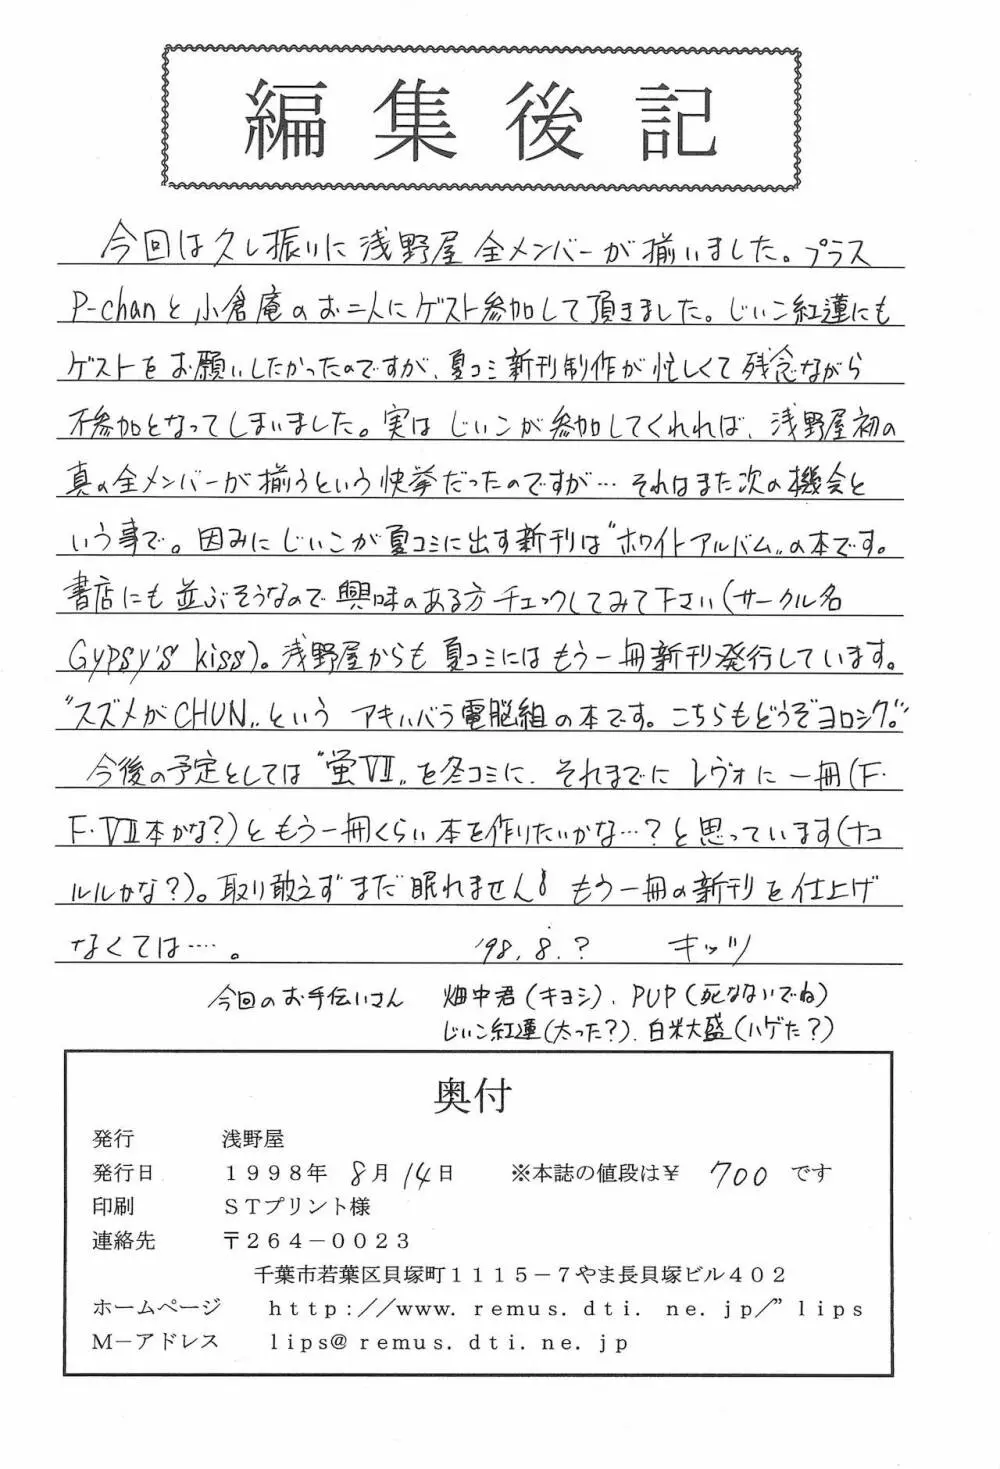 編集後記
今回は久し振りに浅野屋全メンバーが揃いました。プラス
P-chanと小倉庵のお二人にゲスト参加して頂きました。じぃこ紅蓮にも
ゲストをお願いしたかったのですが、夏コミ新刊制作が忙しくて残念ながら
不参加となってしまいました。実はじぃこが参加してくれれば、浅野屋初の
真の全メンバーが揃うという快挙だったのですが…それはまた次の機会と
いう事で。因みにじぃこが夏コミに出す新刊は“ホワイトアルバム„の本です。
書店にも並ぶそうなので興味のある方チェックしてみて下さい(サークル名
Gypsy's kiss)。浅野屋からも夏コミにはもう一冊新刊発行しています。
“スズメがCHUN„というアキハバラ電脳組の本です。こちらもどうぞヨロシク。”
今後の予定としては“蛍VII„を冬コミに、それまでにレヴォに一冊(F・
F・VII本かな?)ともう一冊くらい本を作りたいかな…?と思っています(ナコ
ルルかな?)。取り敢えずまだ眠れません! もう一冊の新刊を仕上げ
なくては….。 '98.8.? キッツ
今回のお手伝いさん 畑中君(キヨシ)、PUP(死なないでね)
じぃこ紅蓮(太った?)、白米大盛(ハゲた?)
奥付
発行 浅野屋
発行日 1998年 8月 14日 ※本誌の値段は¥ 700 です
印刷 STプリント様
連絡先 〒264-0023
千葉市若葉区貝塚町1115-7やま長貝塚ビル402
ホームページ http://www.remus.dti.ne.jp/”lips
M-アドレス lips@remus.dti.ne.jp